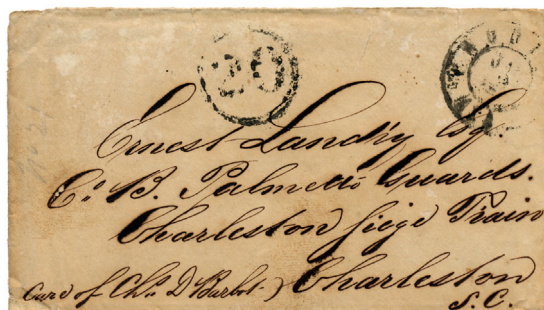 20
Ernest Landry Esq
Co B. Palmetto Guards.
Charleston Siege Train
Care of Chs D Barbot.) Charleston
S.C.